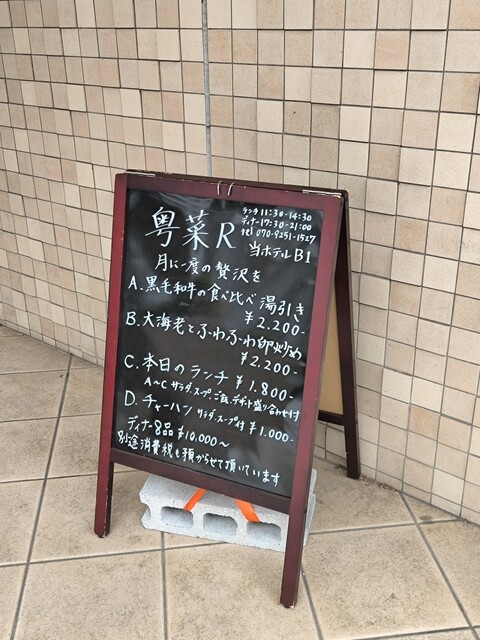 粤菜R
ランチ 11:30-14:30
ディナー 17:30-21:00
tel 070-9251-1527
当ホテルB1
月に一度の贅沢を
A.黒毛和牛の食べ比べ 湯引き
¥2.200-
B.大海老とふわふわ卵炒め
¥2.200-
C.本日のランチ ¥1.800-
A~C サラダ.スープ.ご飯.デザート盛り合わせ付
D.チャーハン サラダ.スープ付 ¥1.000-
ディナー8品 ¥10.000~
別途消費税も預からせて頂いています